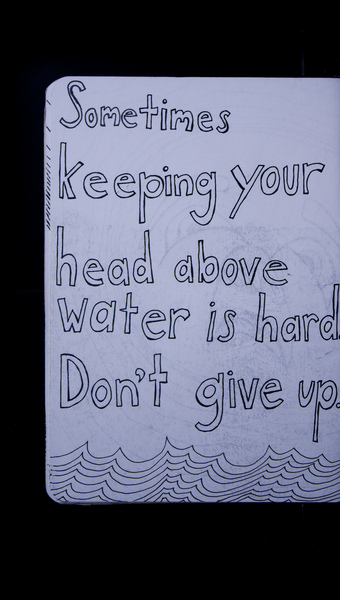 Sometimes
keeping your
head above
water is hard.
Don't give up.